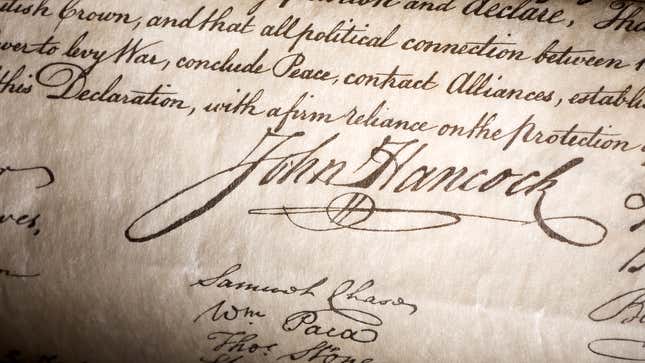 and declare, Tha
Crown, and that all political connection between
to levy War, conclude Peace, contract Alliances, establi
this Declaration, with a firm reliance on the protection
John Hancock
Samuel Chase
Wm Paca
Thos. Stone